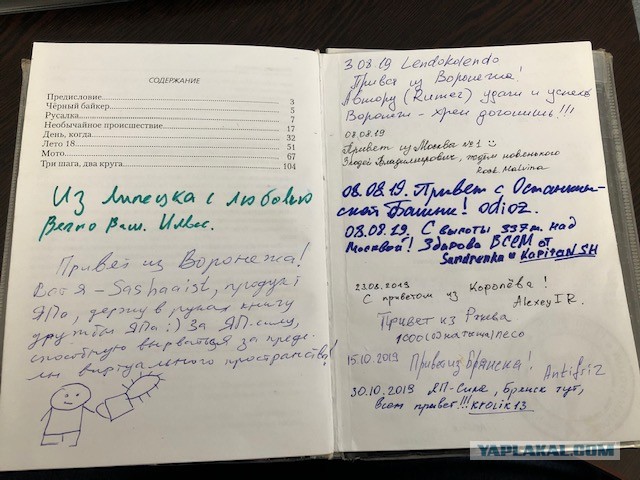 СОДЕРЖАНИЕ
Предисловие 3
Чёрный байкер 5
Русалка 7
Необычайное происшествие 17
День, когда 32
Лето 18 51
Мото 67
Три шага, два круга 104
Из Липецка с любовью
Вечно Ваш.
Привет из Воронежа!
Вот я - Sashaaist, продукт
ЯПа, держу в руках книгу
дружбы ЯПа :) За ЯП-силу,
способную вырваться за преде-
лы виртуального пространства!
3.08.19 Lendokolendo
Привет из Воронежа!
Автору (Rumez) удачи и успехов
Воронеж - хрен догонишь!!!
08.08.19
Привет из Москвы №1
Владимирович, ждём новенького
Rock Malvina
08.08.19. Привет с Останкин-
ской Башни! odioz.
08.08.19. С высоты 337м. над
Москвой! Здарова ВСЕМ от
Sandrenka и KapitaNSH
23.08.2019
С приветом из Королёва!
AlexeyIR.
Привет из Ржева
15.10.2019 Привет из Брянска! Antifriz
30.10.2019 ЯП-Сила, Брянск тут,
всем привет!!! Krolik13
YAPLAKAL.COM